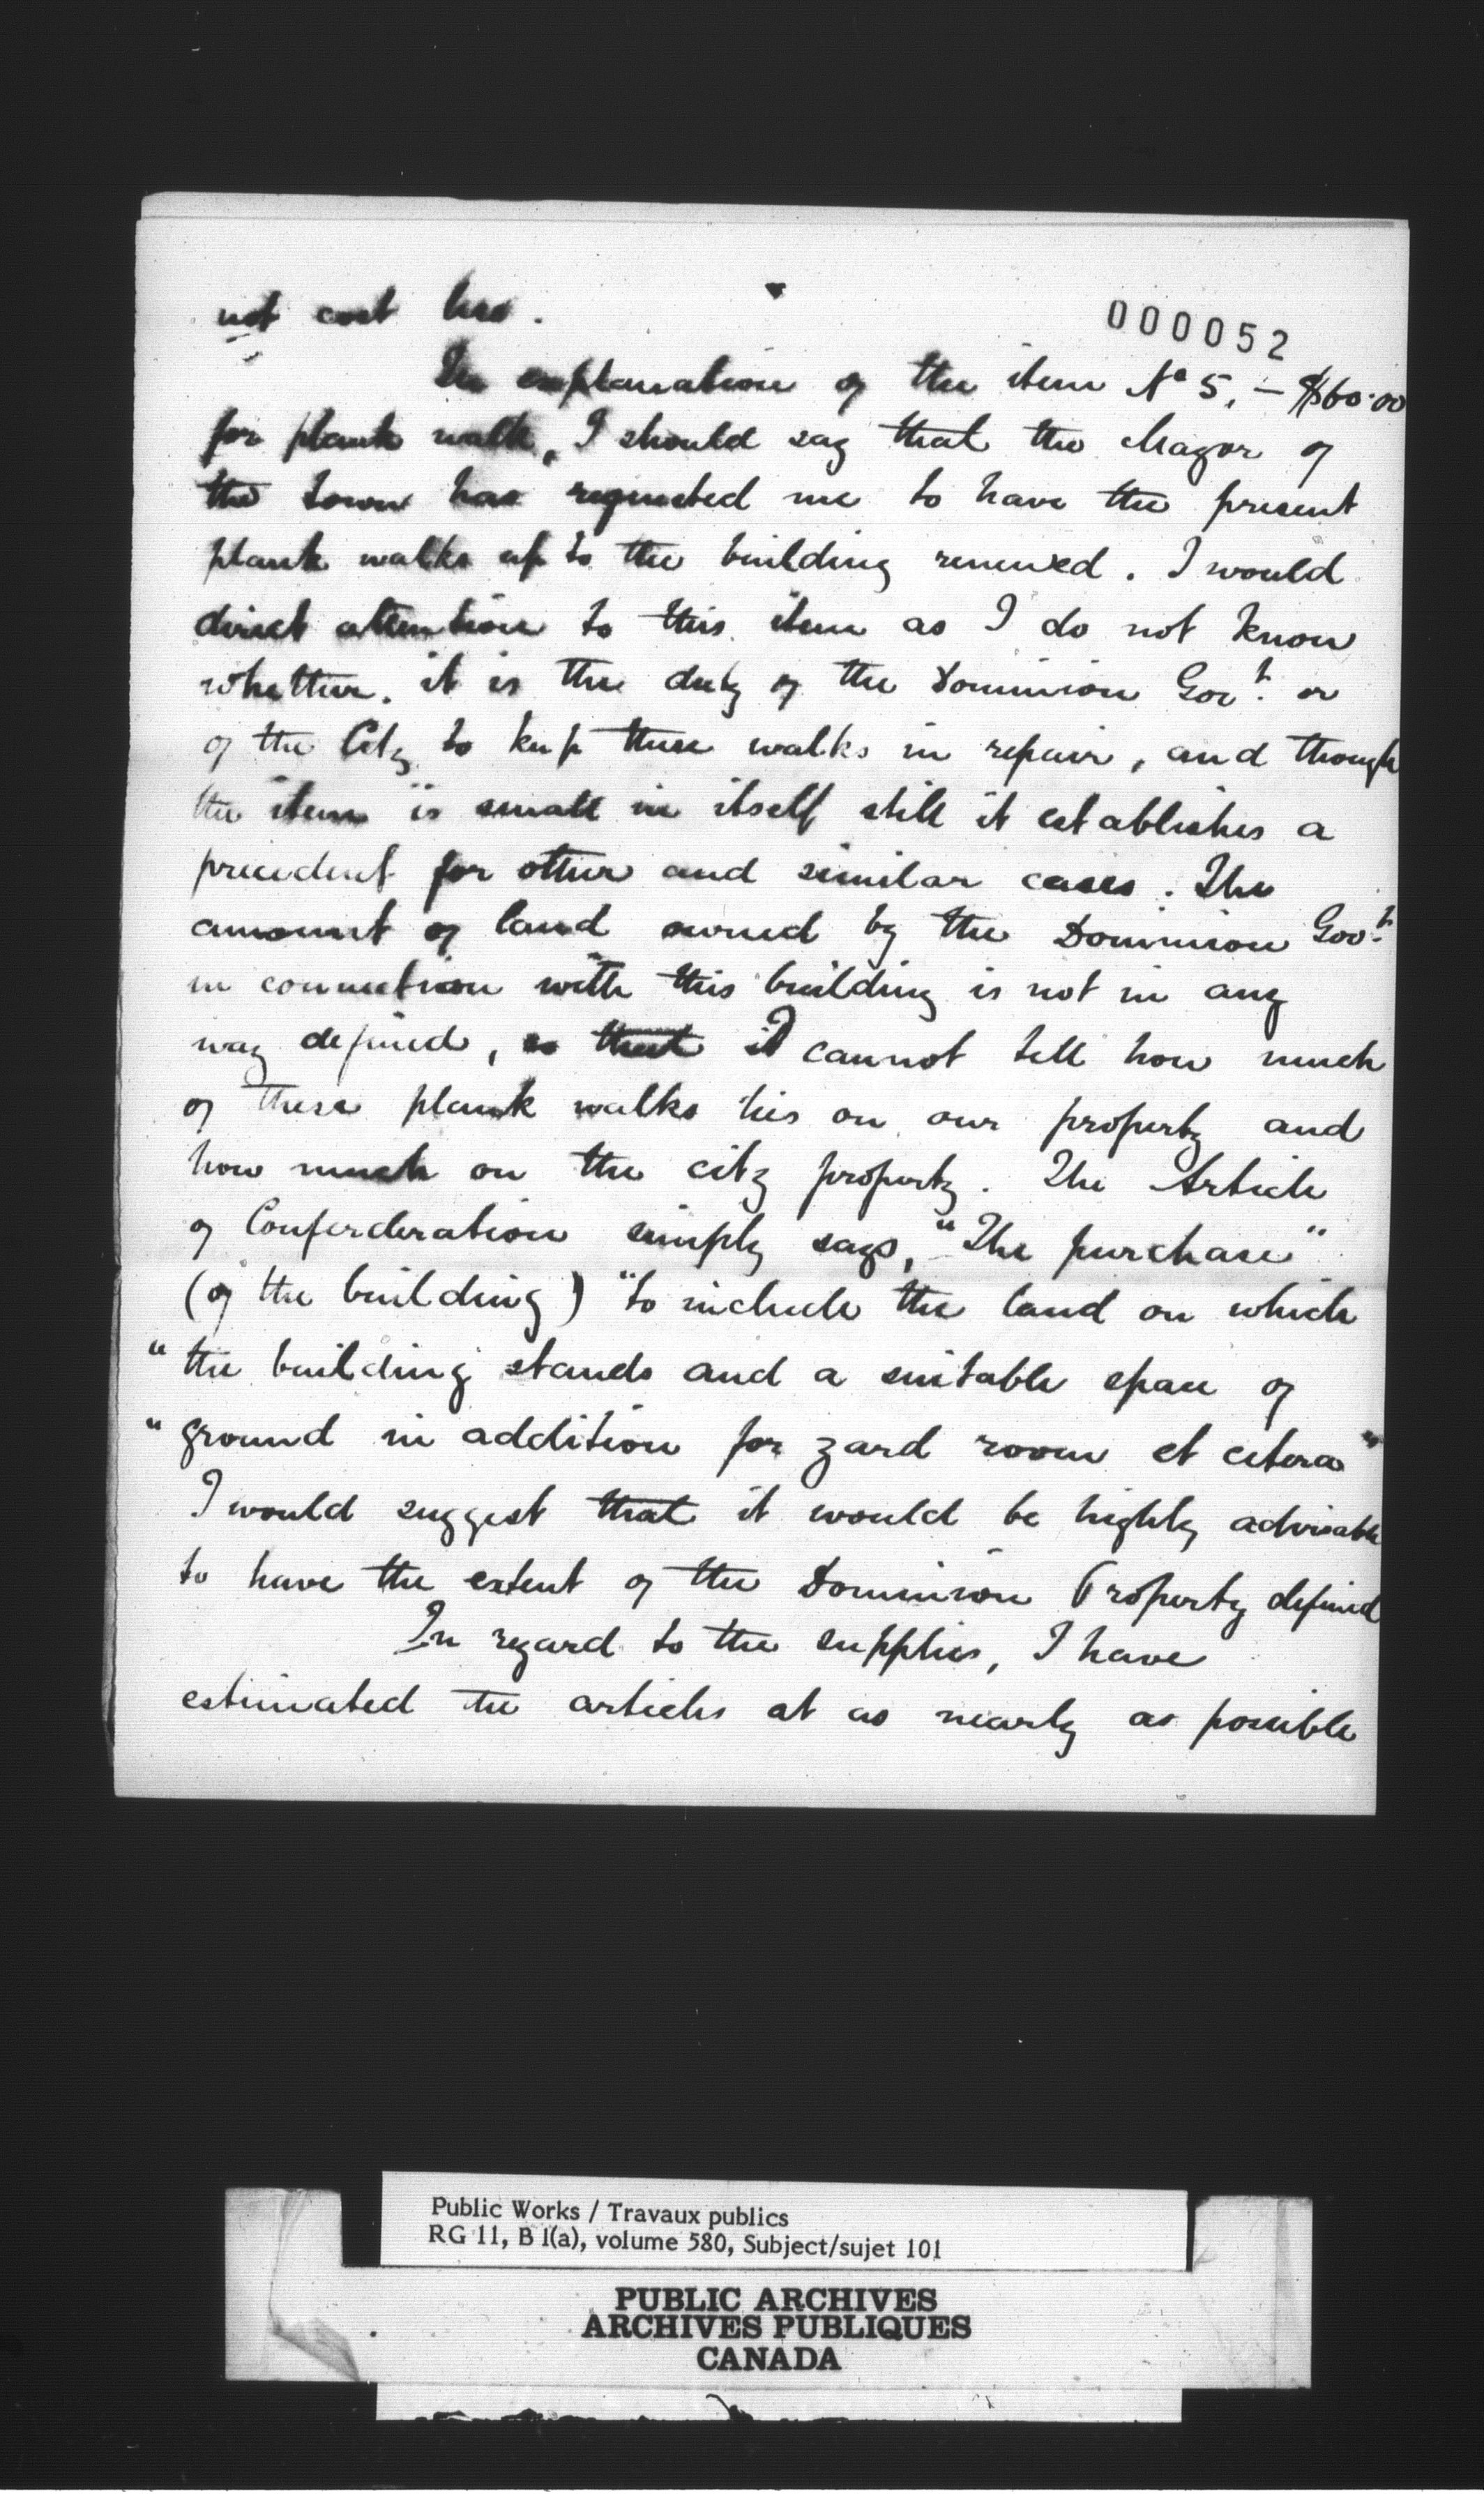 not cost less.
000052
In explanation of the item No 5, — $60.00
for plank walk, I should say that the Mayor of
the town has requested me to have the present
plank walks up to the building renewed. I would
direct attention to this item as I do not know
whether. it is the duty of the Dominion Govt. or
of the City to keep these walks in repair, and though
the item is small in itself still it establishes a
precedent for other and similar cases. The
amount of land owned by the Dominion Govt.
in connection with this building is not in any
way defined, so that I cannot tell how much
of these plank walks lies on our property and
how much on the city property. The Article
of Conferderation simply says, "The purchase"
(of the building) "to include the land on which
"the building stands and a suitable space of
"ground in addition for yard room et cetera"
I would suggest that it would be highly advisable
to have the extent of the Dominion Property defined
In regard to the supplies, I have
estimated the articles at as nearly as possible
Public Works / Travaux publics
RG 11, B 1(a), volume 580, Subject/sujet 101
PUBLIC ARCHIVES
ARCHIVES PUBLIQUES
CANADA